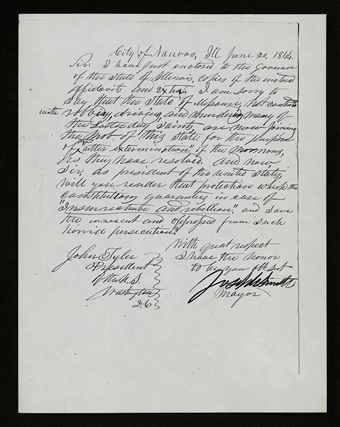 City of Nauvoo, Ill. June 20, 1844.
Sir I have just enclosed to the Governor
of the State of Illinois, copies of the enclosed
affidavits and extra. I am sorry to
say that the State of Missouri, not contented
with robbing, driving and murdering many of
the Latter day Saints, are now joining
the mob of this state for the purpose
of "utter extermination" of the Mormons,
as they have resolved. And now,
Sir, as president of the United States,
will you render that protection which the
constitution guarantees in case of
"insurrection and rebellion," and save
the innocent and oppressed from such
horrid persecution?
With great respect
I have the honor
to be your obt. svt
Joseph Smith
Mayor
John Tyler
President
of the U.S.
Washington
D.C.